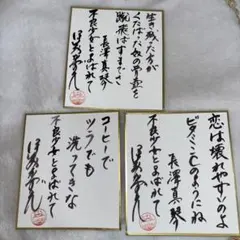 生き残った方が
くたばった奴の骨壺を
蹴飛ばすまでさ
長澤真琴
不良少女とよばれて
コーヒーで
ツラでも
洗ってきな
不良少女とよばれて
恋は壊れやすいのよ
ビタミンCのようにね
長澤真琴
不良少女とよばれて